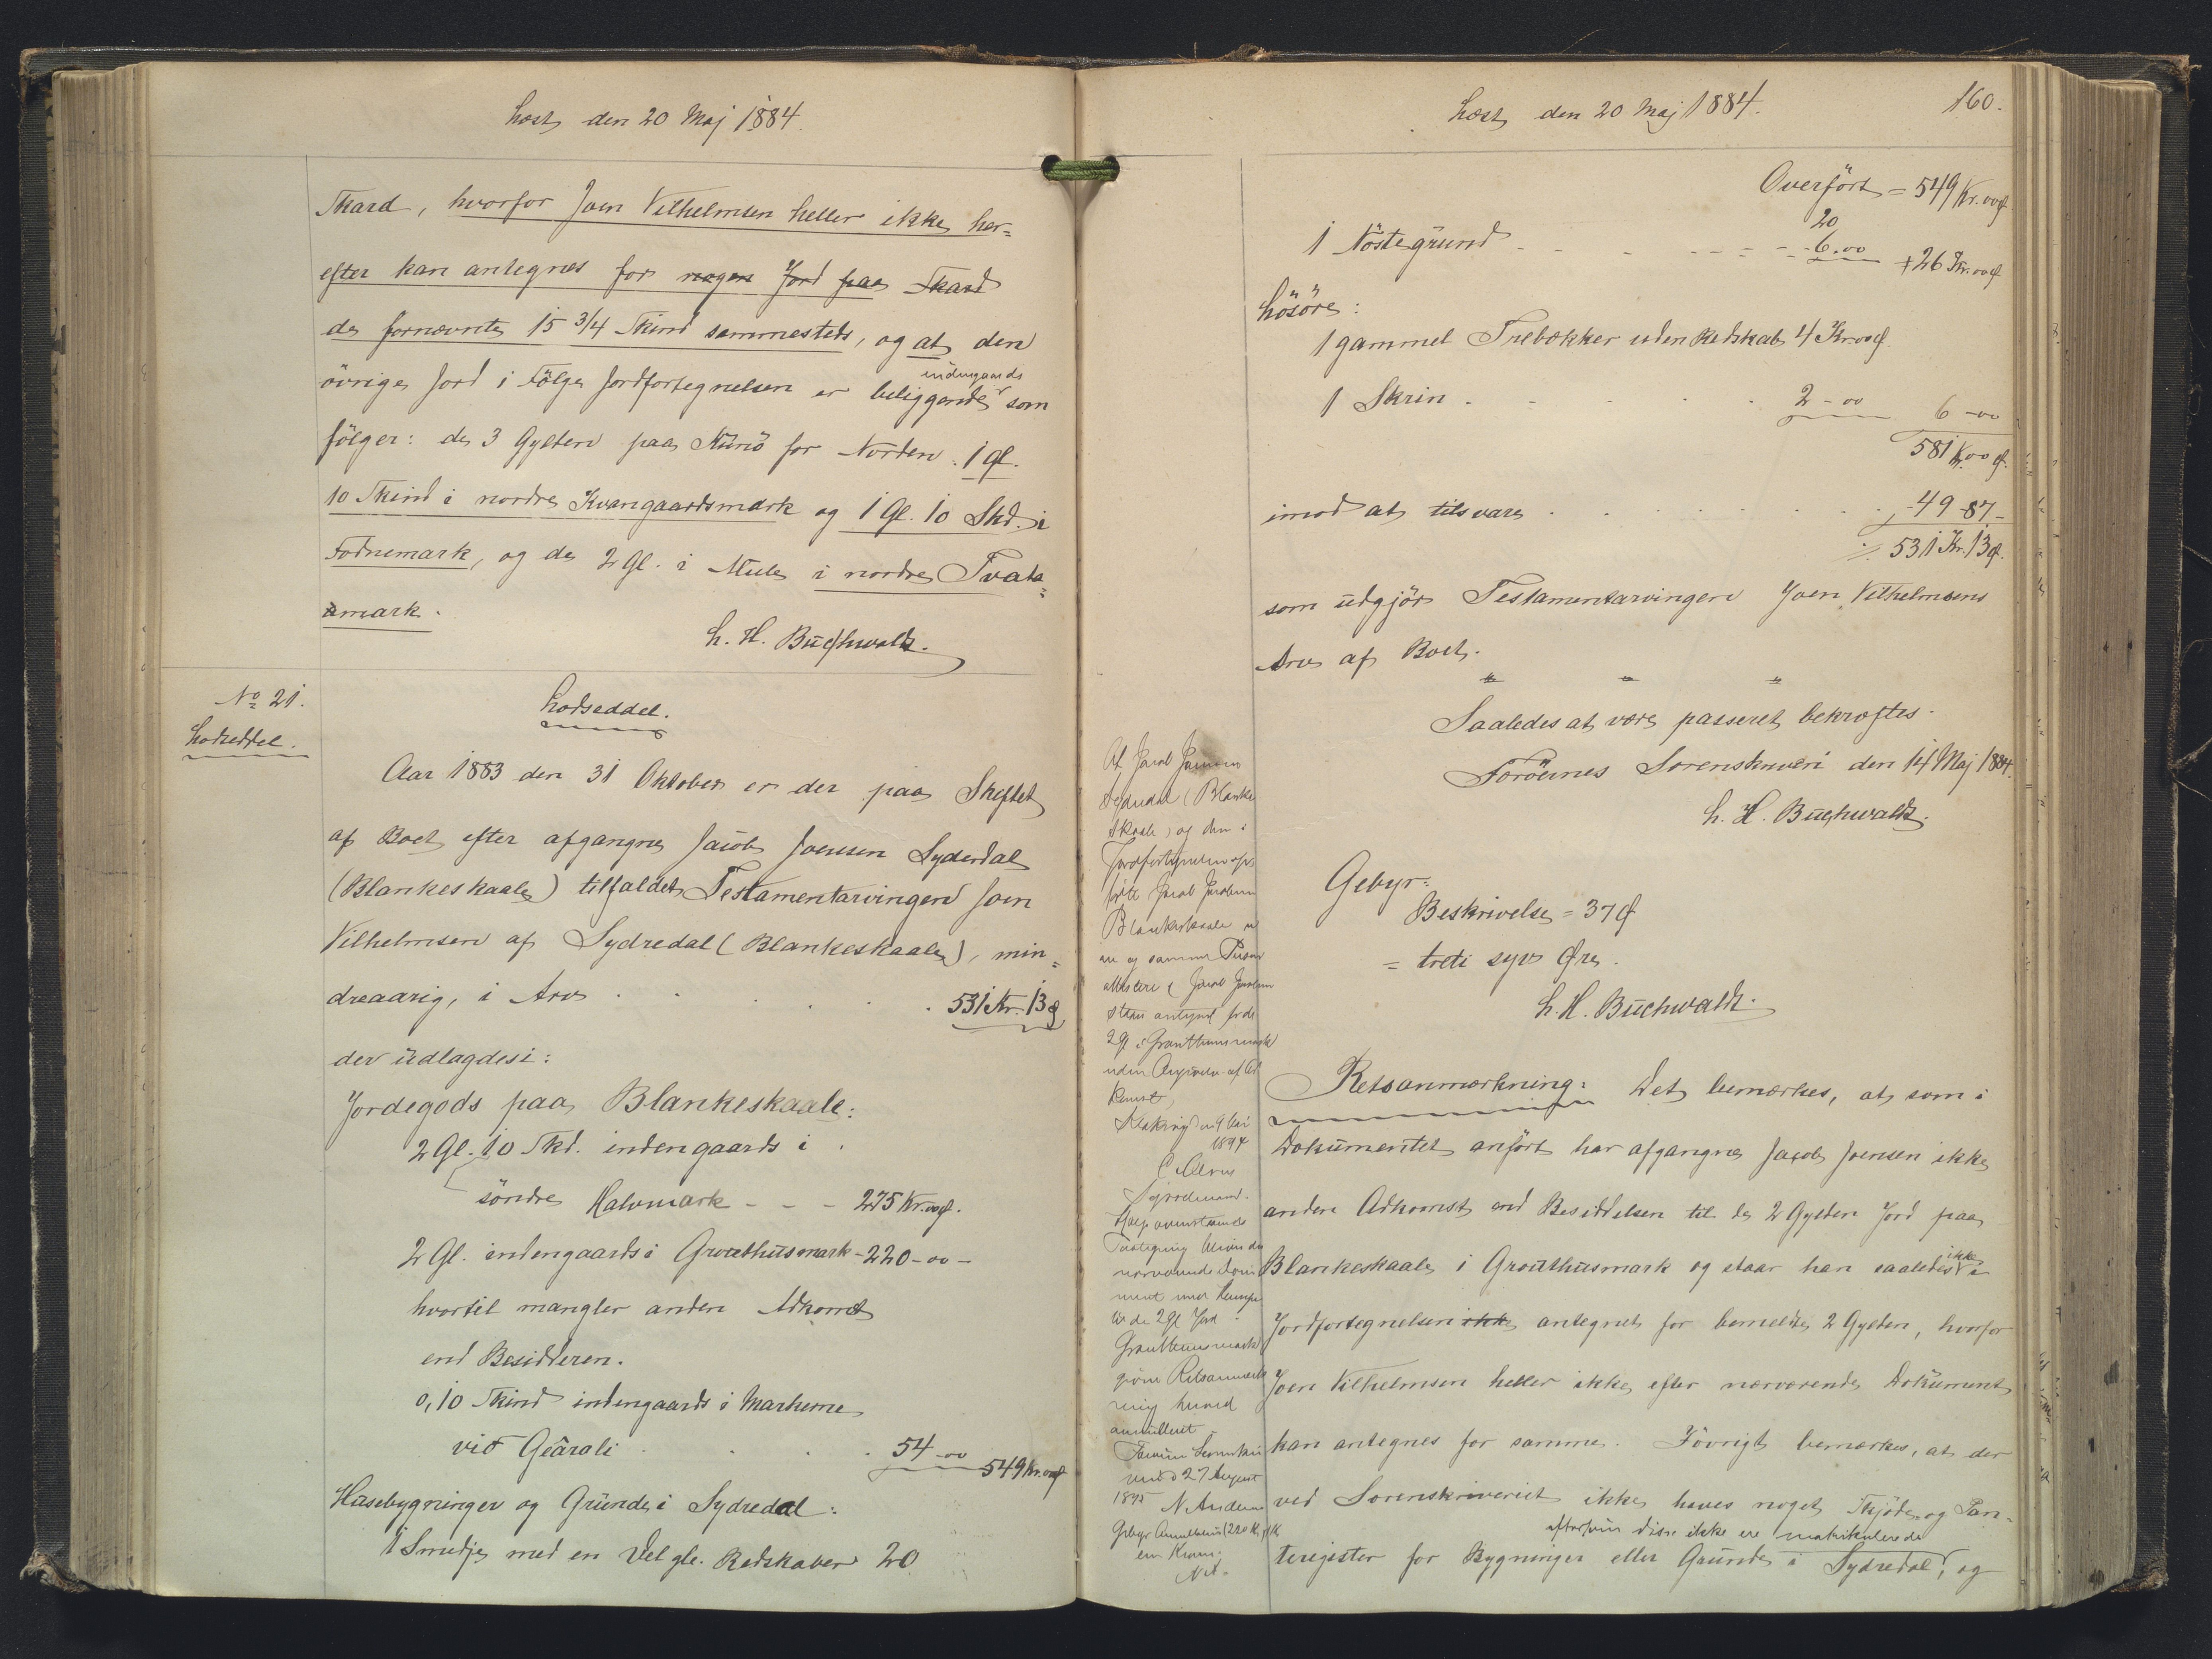 Læst den 20 Maj 1884.
Skard, hvorfor Joen Vilhelmsen heller ikke her=
efter kan antegnes for nogen Jord paa Skard
de fornævnte 15 3/4 Skind sammesteds, og at den
övrige Jord i Fölge Jordfortegnelsen er beliggende indengaards som
fölger: de 3 Gylden paa Kunö for Norden: 1 Gl.
10 Skind i nordre Kvangaardsmark og 1 Gl. 10 Skd. i
Fodnemark, og de 2 Gl. i Mule i nordre Tvata=
amark.
L. H. Buchwaldt.
No 21.
Lodseddel.
Lodseddel.
Aar 1883 den 31 Oktober er der paa Skiftet
af Boet efter afgangne Jacob Joensen Syderdal
(Blankeskaale) tilfaldet Testamentarvingen Joen
Vilhelmsen af Sydredal (Blankeskaale), min=
dreaarig, i Arv . . . . . 531 Kr. 13 Ø
der udlagdes i:
Jordegods paa Blankeskaale:
2 Gl. 10 Skd. indengaards i
söndre Halvmark - - - 275 Kr. 00 Ø.
2 Gl. indengaards i Grouthusmark - 220 - 00 -
hvortil mangler anden Adkomst
end Besidderen.
0,10 Skind indengaards i Markerne
við Gearali . . . . 54 - 00 549 Kr. 00 Ø
Husebygninger og Grunde i Sydredal:
1 Smedje med en Del gle. Redskaber 20
Læst den 20 Maj 1884.
160.
Overfört = 549 Kr. 00 Ø.
20
1 Nöstegrund - - - - - 6.00 + 26 Kr. 00 Ø
Lösöre:
1 gammel Trebækker uden Redskab 4 Kr. 00 Ø
1 Skrin . . . . . 2 - 00 6 - 00
581 Kr. 00 Ø.
imod at tilsvare . . . . . . . 49 - 87 -
531 Kr. 13 Ø.
som udgjör Testamentarvingen Joen Vilhelmsens
Arv af Boet.
" " "
Saaledes at være passeret bekræftes.
Færöernes Sorenskriveri den 14 Maj 1884.
L. H. Buchwaldt.
Gebyr:
Beskrivelse = 37 Ø
= treti syv Øre.
L. H. Buchwaldt.
Retsanmærkning: Det bemærkes, at som i
Dokumentet anfört har afgangne Jacob Joensen ikke
anden Adkomst end Besiddelsen til de 2 Gylden Jord paa
Blankeskaale i Grouthusmark og staar han saaledes ikke i
Jordfortegnelsen ikke antegnet for bemeldte 2 Gylden, hvorfor
Joen Vilhelmsen heller ikke efter nærværende Dokument
kan antegnes for samme. Iövrigt bemærkes, at der
ved Sorenskriveriet ikke haves noget Skjöde- og Pan=
teregister for Bygninger eller Grunde i Sydredal, eftersom disse ikke ere matrikulerede og
At Jacob Joensen
Sydredal (Blanke
skaale) og den i
Jordfortegnelsen op-
förte Jacob Jacobsen
Blankeskaale er
en og samme Person
attesteres (Jacob Jacobsen
staar antegnet for de
2 Gl i Grouthusmark
uden Angivelse af Ad
komst)
Klaksvig den 9 Mai
1894
Sysselmand.
Ifölge ovenstaaende
nærværende Doku
ment med Hensyn
til de 2 Gl Jord i
Grouthusmark
givne Retsanmærk
ning herved
annulleret
den 27 August
1895
N. Andersen
Gebyr
en Krone.
N.A.